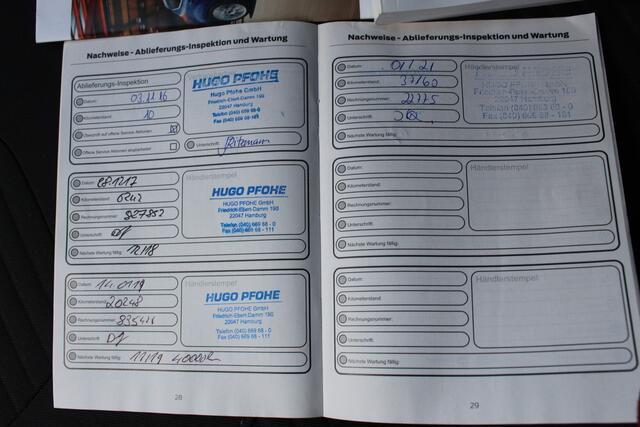 Nachweise - Ablieferungs-Inspektion und Wartung
Ablieferungs-Inspektion
Datum: 03.11.16
Kilometerstand: 10
Überprüft auf offene Service-Aktionen:
Offene Service-Aktionen abgearbeitet:
HUGO PFOHE
Hugo Pfohe GmbH
Friedrich-Ebert-Damm 190
22047 Hamburg
Telefon (040) 669 68-0
Fax (040) 669 68-111
Unterschrift:
Datum:
Kilometerstand:
Rechnungsnummer:
Unterschrift:
Nächste Wartung fällig: 12/18
Händlerstempel
HUGO PFOHE
HUGO PFOHE GmbH
Friedrich-Ebert-Damm 190
22047 Hamburg
Telefon (040) 669 68 - 0
Fax (040) 669 68 - 111
Datum: 14.01.19
Kilometerstand: 20248
Rechnungsnummer:
Unterschrift:
Nächste Wartung fällig: 11/19 40000
Händlerstempel
HUGO PFOHE
HUGO PFOHE GmbH
Friedrich-Ebert-Damm 190
22047 Hamburg
Telefon (040) 669 68 - 0
Fax (040) 669 68 - 111
28
Nachweise - Ablieferungs-Inspektion und Wartung
Datum: 01/21
Kilometerstand: 37160
Rechnungsnummer:
Unterschrift:
Nächste Wartung fällig:
Händlerstempel
HUGO PFOHE GmbH
22047 Hamburg
Datum:
Kilometerstand:
Rechnungsnummer:
Unterschrift:
Nächste Wartung fällig:
Händlerstempel
Datum:
Kilometerstand:
Rechnungsnummer:
Unterschrift:
Nächste Wartung fällig:
Händlerstempel
29